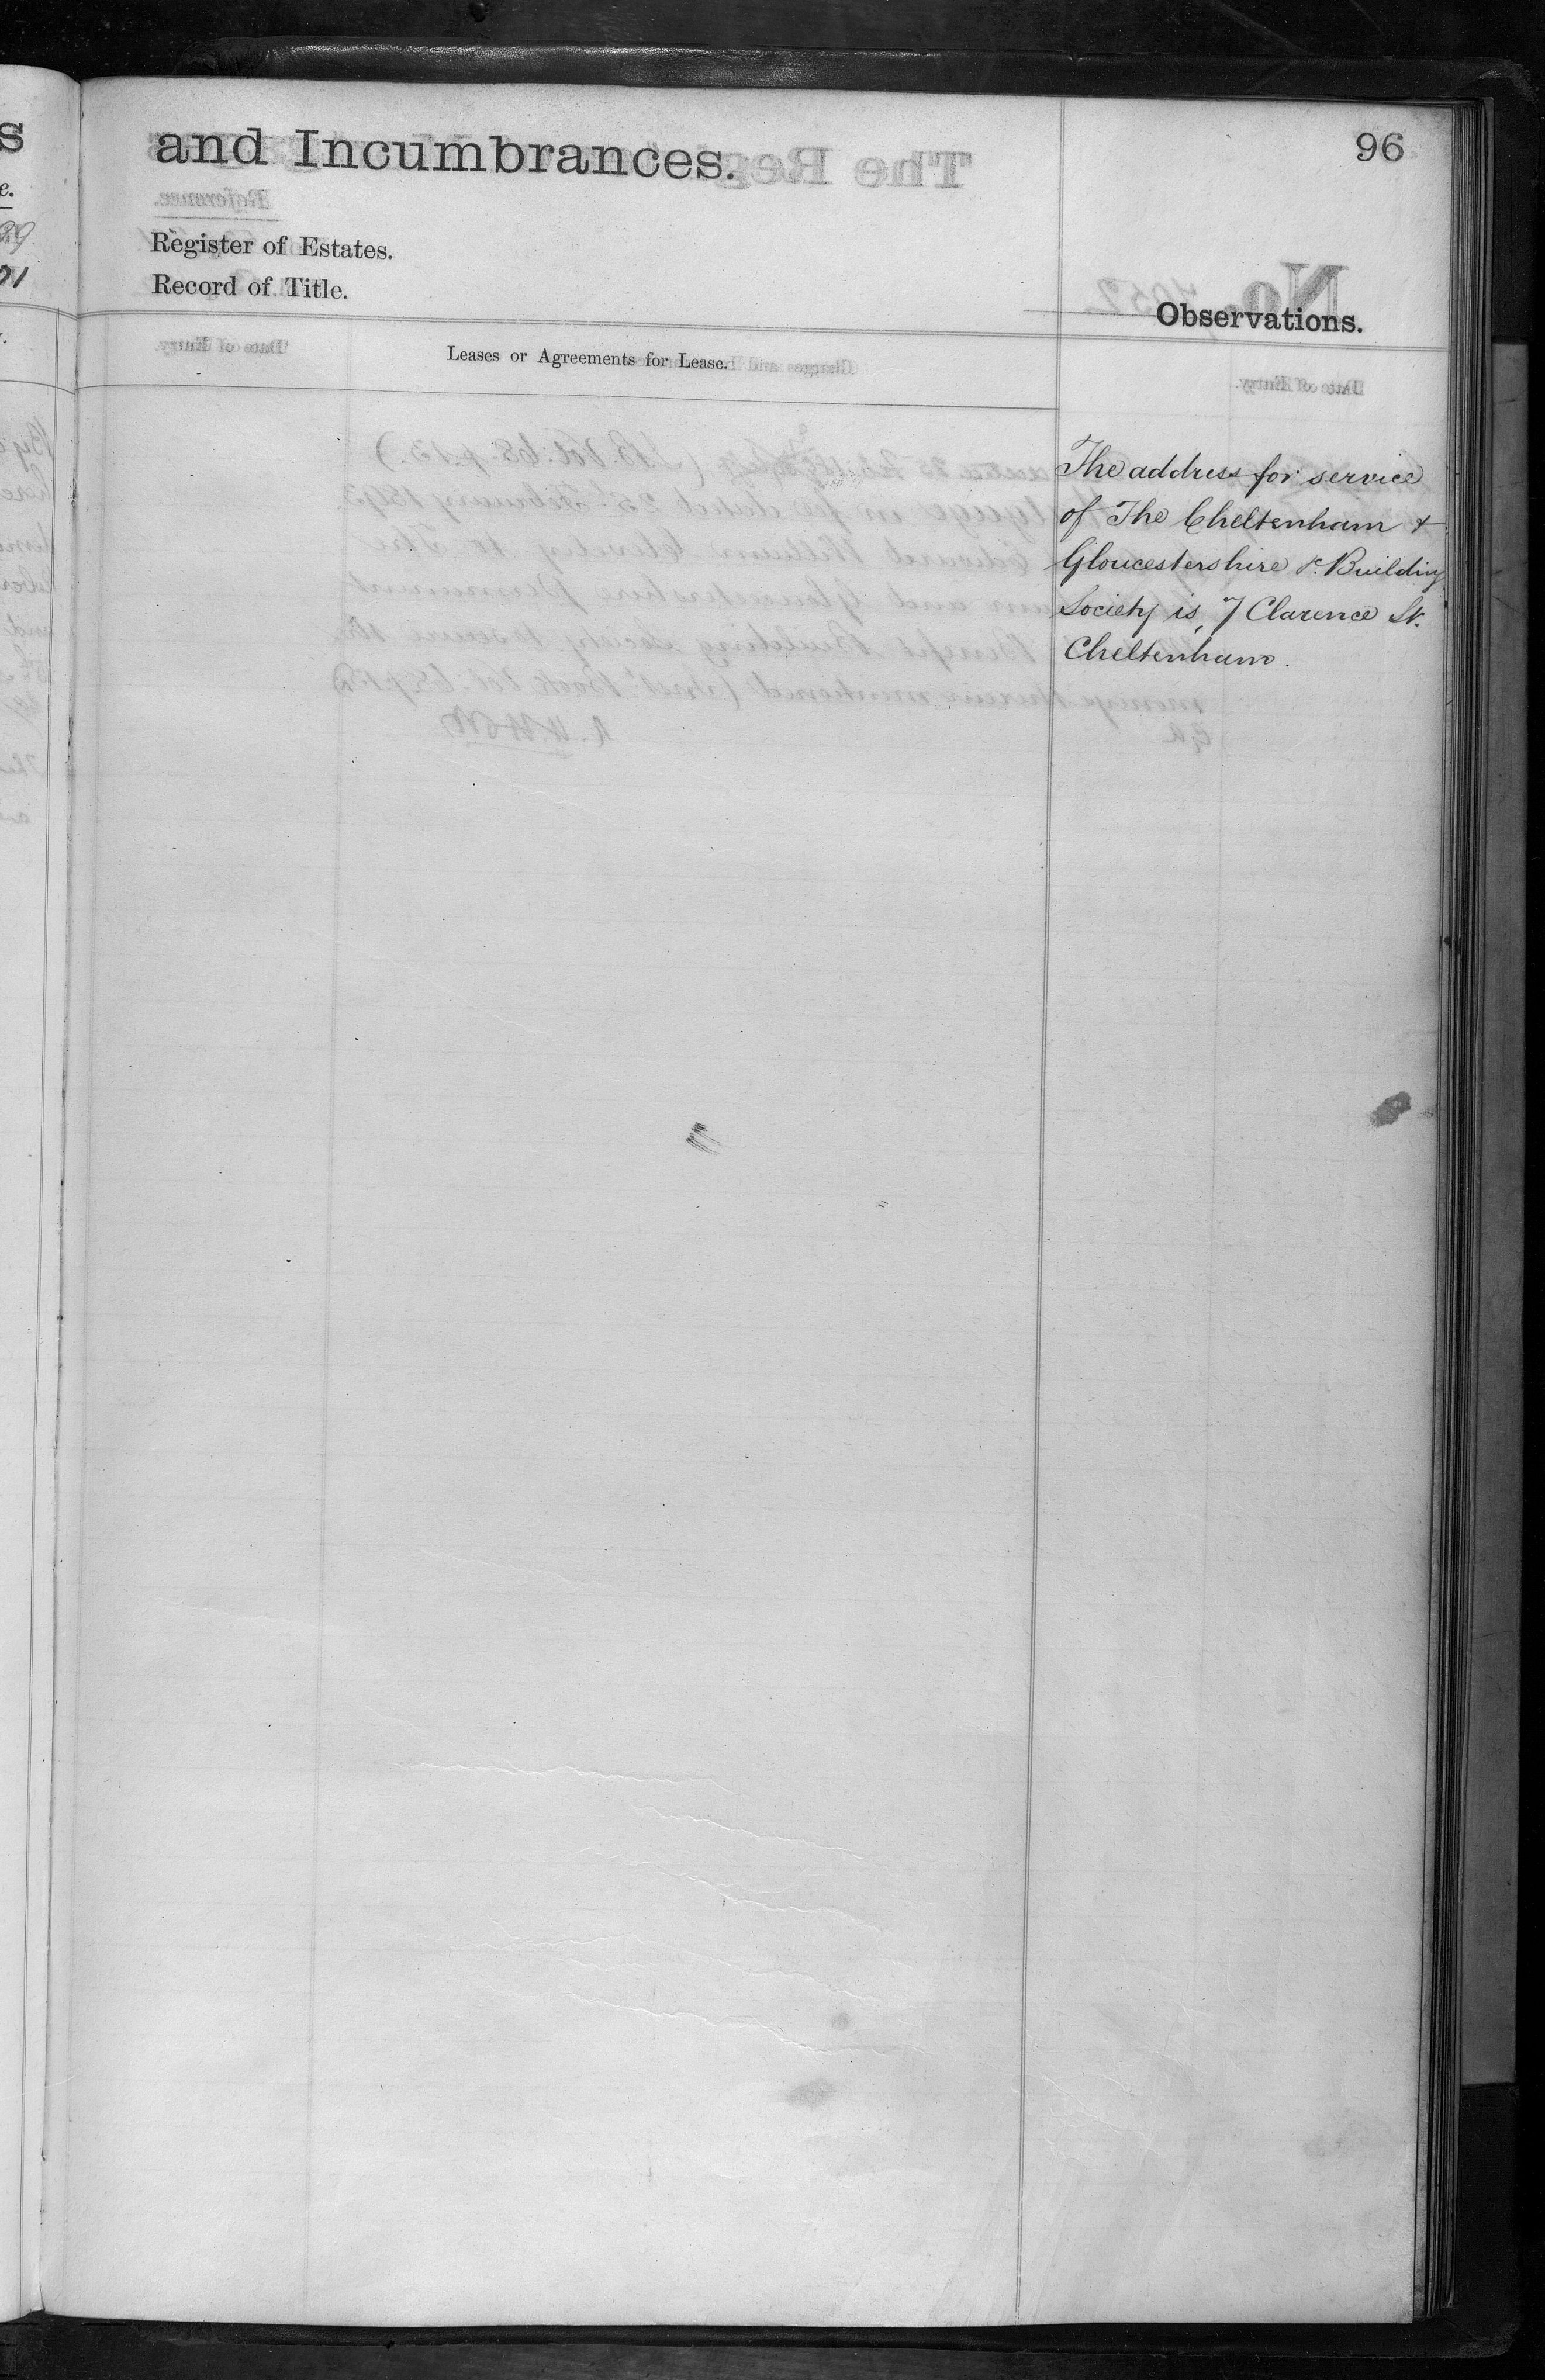 and Incumbrances.
96
Register of Estates.
Record of Title.
Observations.
Leases or Agreements for Lease.
The address for service
of The Cheltenham &
Gloucestershire &c. Building
Society is, 7 Clarence St.
Cheltenham.